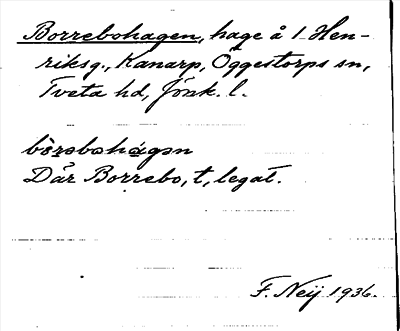 Borrebohagen, hage å 1 Hen-
riksg., Kanarp, Öggestorps sn,
Tveta hd, Jönk. l.
bòrebohágən
Där Borrebo, t, legat.
F. Neij 1936.